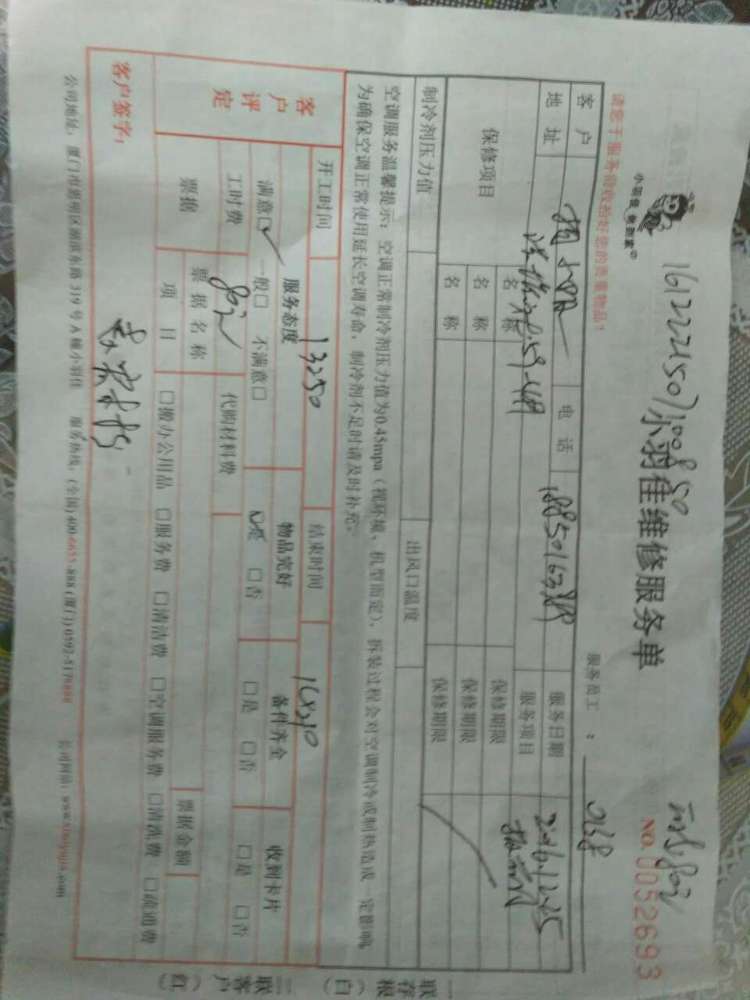 1612221507100850
小羽佳 家政®
小羽佳维修服务单
NO. 0052693
请您于服务前收拾好您的贵重物品!
服务员工:
客户
电话
18850163889
服务日期
2016.12.25
地址
服务项目
保修项目
名称
保修期限
名称
保修期限
名称
保修期限
制冷剂压力值
出风口温度
空调服务温馨提示:空调正常制冷剂压力值为0.45mpa(视环境、机型而定),拆装过程会对空调制冷或制热造成一定影响,
为确保空调正常使用延长空调寿命,制冷剂不足时请及时补充。
开工时间
13:50
结束时间
客户评定
服务态度
物品完好
备件齐全
收到卡片
满意□ 一般□ 不满意□
□是 □否
□是 □否
□是 □否
工时费
80元
代购材料费
票据
票据名称
票据金额
项目
□搬办公用品 □服务费 □清洁费 □空调服务费 □清洗费 □疏通费
客户签字:
公司地址:厦门市思明区湖滨东路 319 号 A 幢小羽佳 服务热线:(全国) 400-6655-888 (厦门) 0592-5178888 公司网站:www.xmxyujia.com
一联存根(白)
二联客户(红)